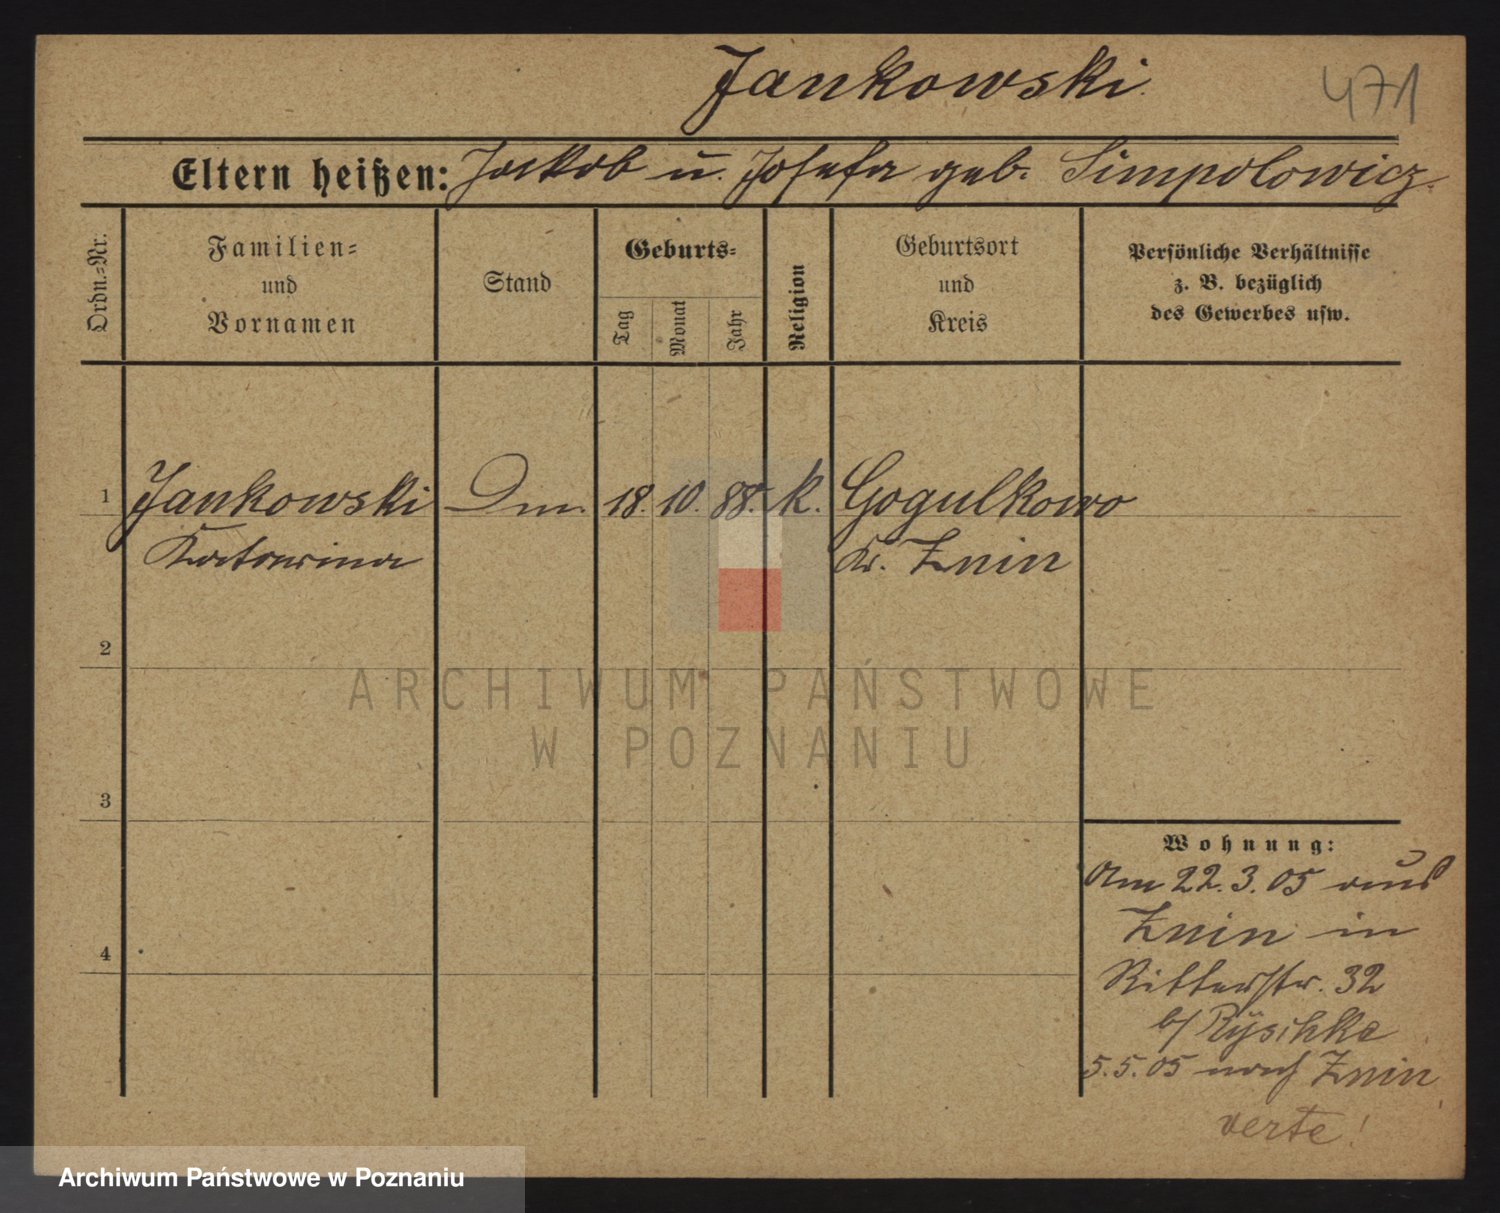 Jankowski
471
Eltern heißen: Jakob u. Josefa geb. Simpolowicz.
Ordn.-Nr.
Familien-
und
Vornamen
Stand
Geburts-
Tag
Monat
Jahr
Religion
Geburtsort
und
Kreis
Persönliche Verhältnisse
z. B. bezüglich
des Gewerbes usw.
1 Jankowski Dm. 18. 10. 88. k. Gogulkowo
Katarina Kr. Znin
2
ARCHIWUM PAŃSTWOWE
W POZNANIU
3
Wohnung:
Am 22.3.05 aus
Znin in
4
Ritterstr. 32
b/ Ryschke
5.5.05 nach Znin
verte!
Archiwum Państwowe w Poznaniu